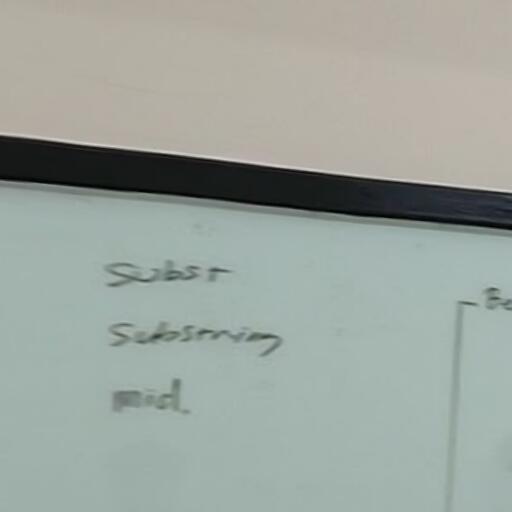 Subst
Substring
mid.